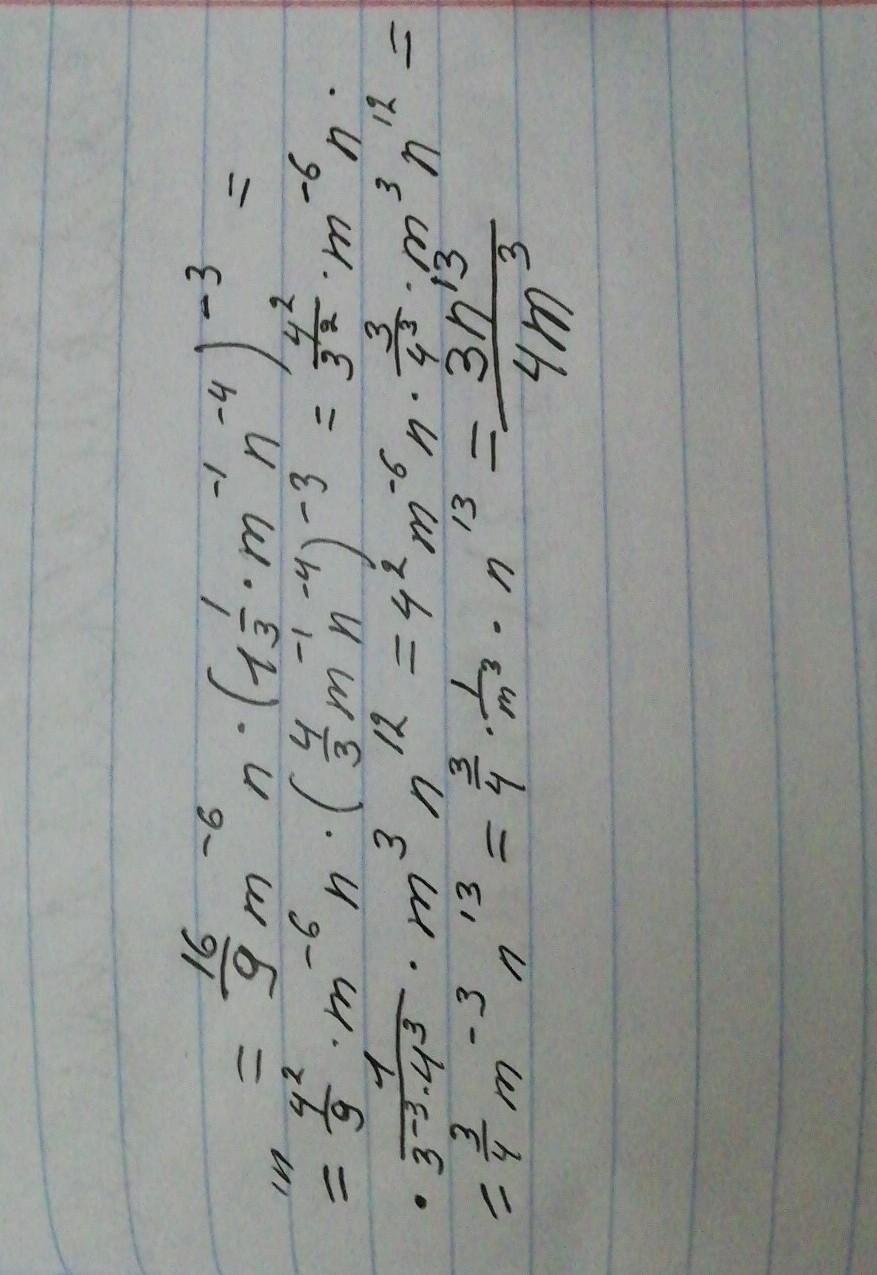 = 16/9 m^-6 n · (1 1/3 · m^-1 n^-4)^-3 =
= 4^2/9 · m^-6 n · (4/3 m^-1 n^-4)^-3 = 4^2/3^2 · m^-6 n ·
· 1/(3^-3 · 4^3) · m^3 n^12 = 4^2 m^-6 n · 3/4^3 · m^3 n^12 =
= 3/4 m^-3 n^13 = 3/4 · 1/m^3 · n^13 = 3n^13/4m^3